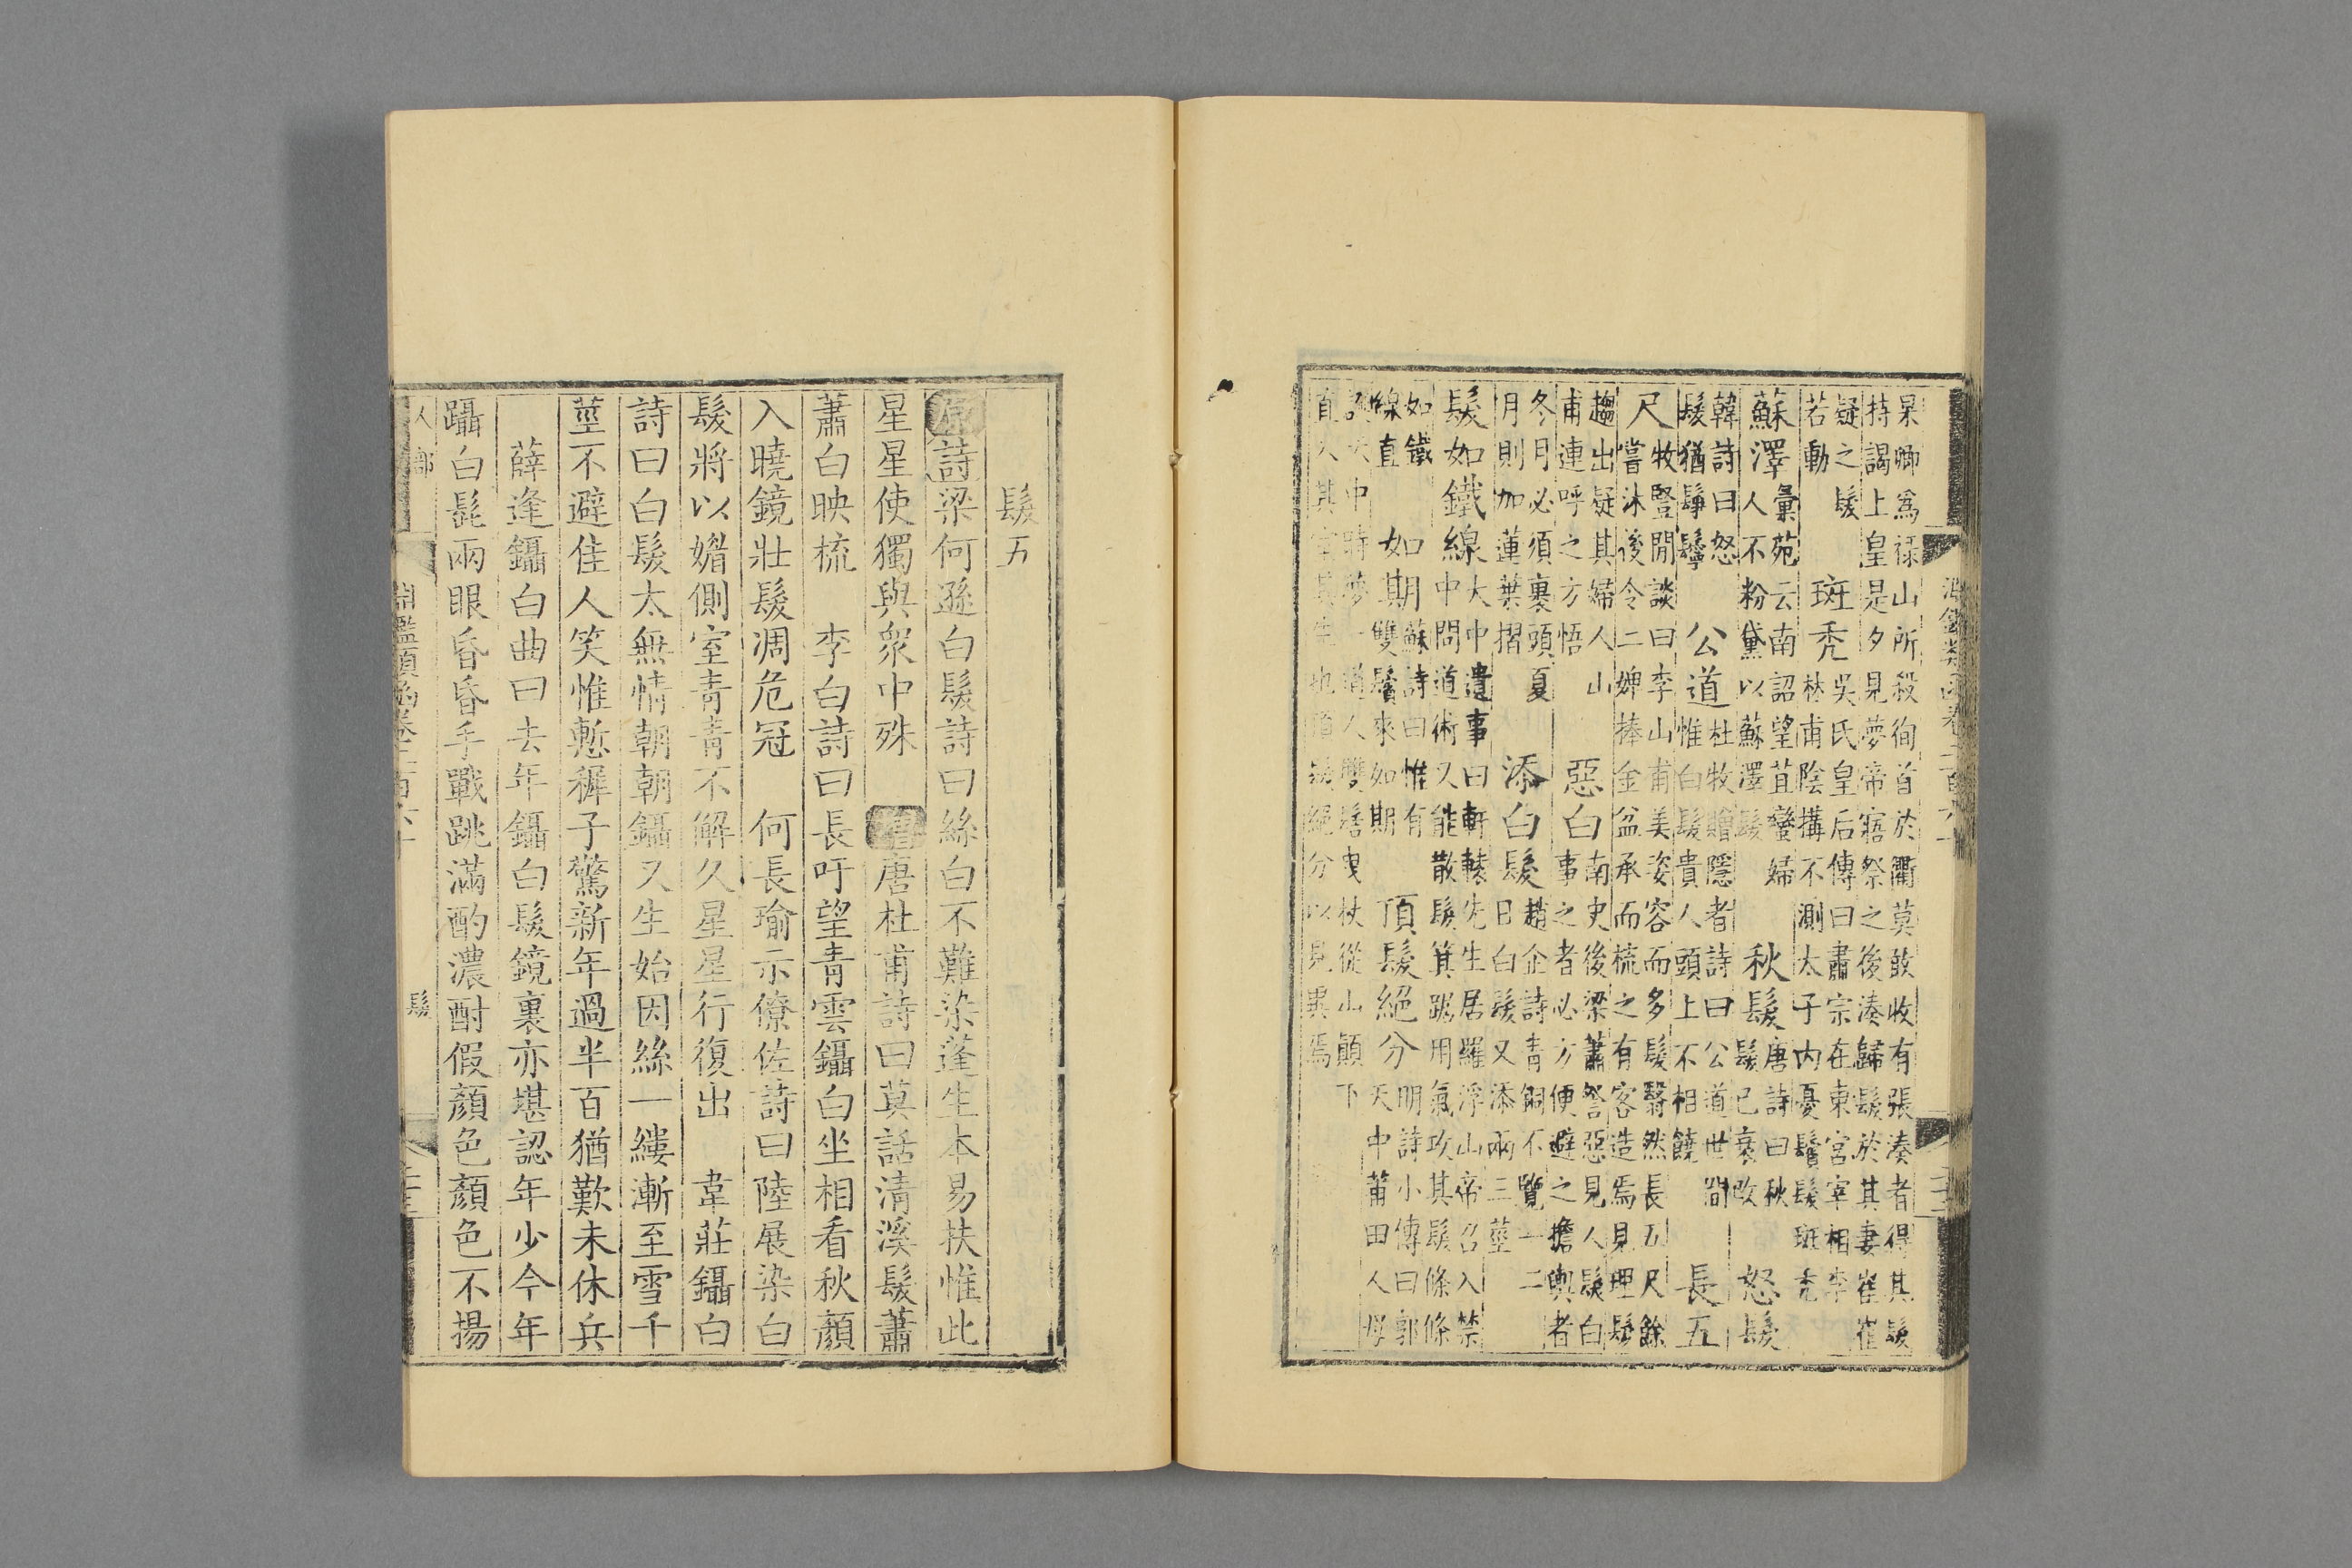 杲卿爲祿山所殺徇首於衢莫敢收有張湊者得其髮
持謁上皇是夕見夢帝寤祭之後湊歸髮於其妻崔崔
疑之髮
若動
斑禿
吳氏皇后傳曰肅宗在東宮宰相李
林甫陰搆不測太子内憂鬢髮斑禿
蘇澤
彙苑云南詔望苴蠻婦
人不粉黛以蘇澤髮
秋髮
唐詩曰秋
髮已衰改
怒髮
韓詩曰怒
髮猶鬇鬡
公道
杜牧贈隱者詩曰公道世間
惟白髮貴人頭上不相饒
長五
尺
牧豎閒談曰李山甫美姿容而多髮翳然長五尺餘
嘗沐後令二婢捧金盆承而梳之有客造焉見理髮
趨出疑其婦人山
甫連呼之方悟
惡白
南史後梁蕭詧惡見人髮白
事之者必方便避之擔輿者
冬月必須裹頭夏
月則加蓮葉摺
添白髮
趙企詩青銅不覽一二
日白髮又添兩三莖
髮如鐵線
大中遺事曰軒轅先生居羅浮山帝召入禁
中問道術又能散髮箕踞用氣攻其髮條條
如鐵
線直
如期
蘇詩曰惟有
雙鬢來如期
頂髮絕分
明詩小傳曰郭
天中莆田人母
天中時夢一道人雙髻曳杖從山顛下
直入其室其生也頂髮絕分以見異焉
髮五
原詩梁何遜白髮詩曰絲白不難染蓬生本易扶惟此
星星使獨與衆中殊 增唐杜甫詩曰莫話清溪髮蕭
蕭白映梳 李白詩曰長吁望青雲鑷白坐相看秋顏
入曉鏡壯髮凋危冠 何長瑜示僚佐詩曰陸展染白
髮將以媚側室青青不解久星星行復出 韋莊鑷白
詩曰白髮太無情朝朝鑷又生始因絲一縷漸至雪千
莖不避佳人笑惟慙稺子驚新年過半百猶歎未休兵
薛逢鑷白曲曰去年鑷白髮鏡裏亦堪認年少今年
躡白髭兩眼昏昏手戰跳滿酌濃酎假顏色顏色不揚
人部
淵鑑類函卷二百六十
髮